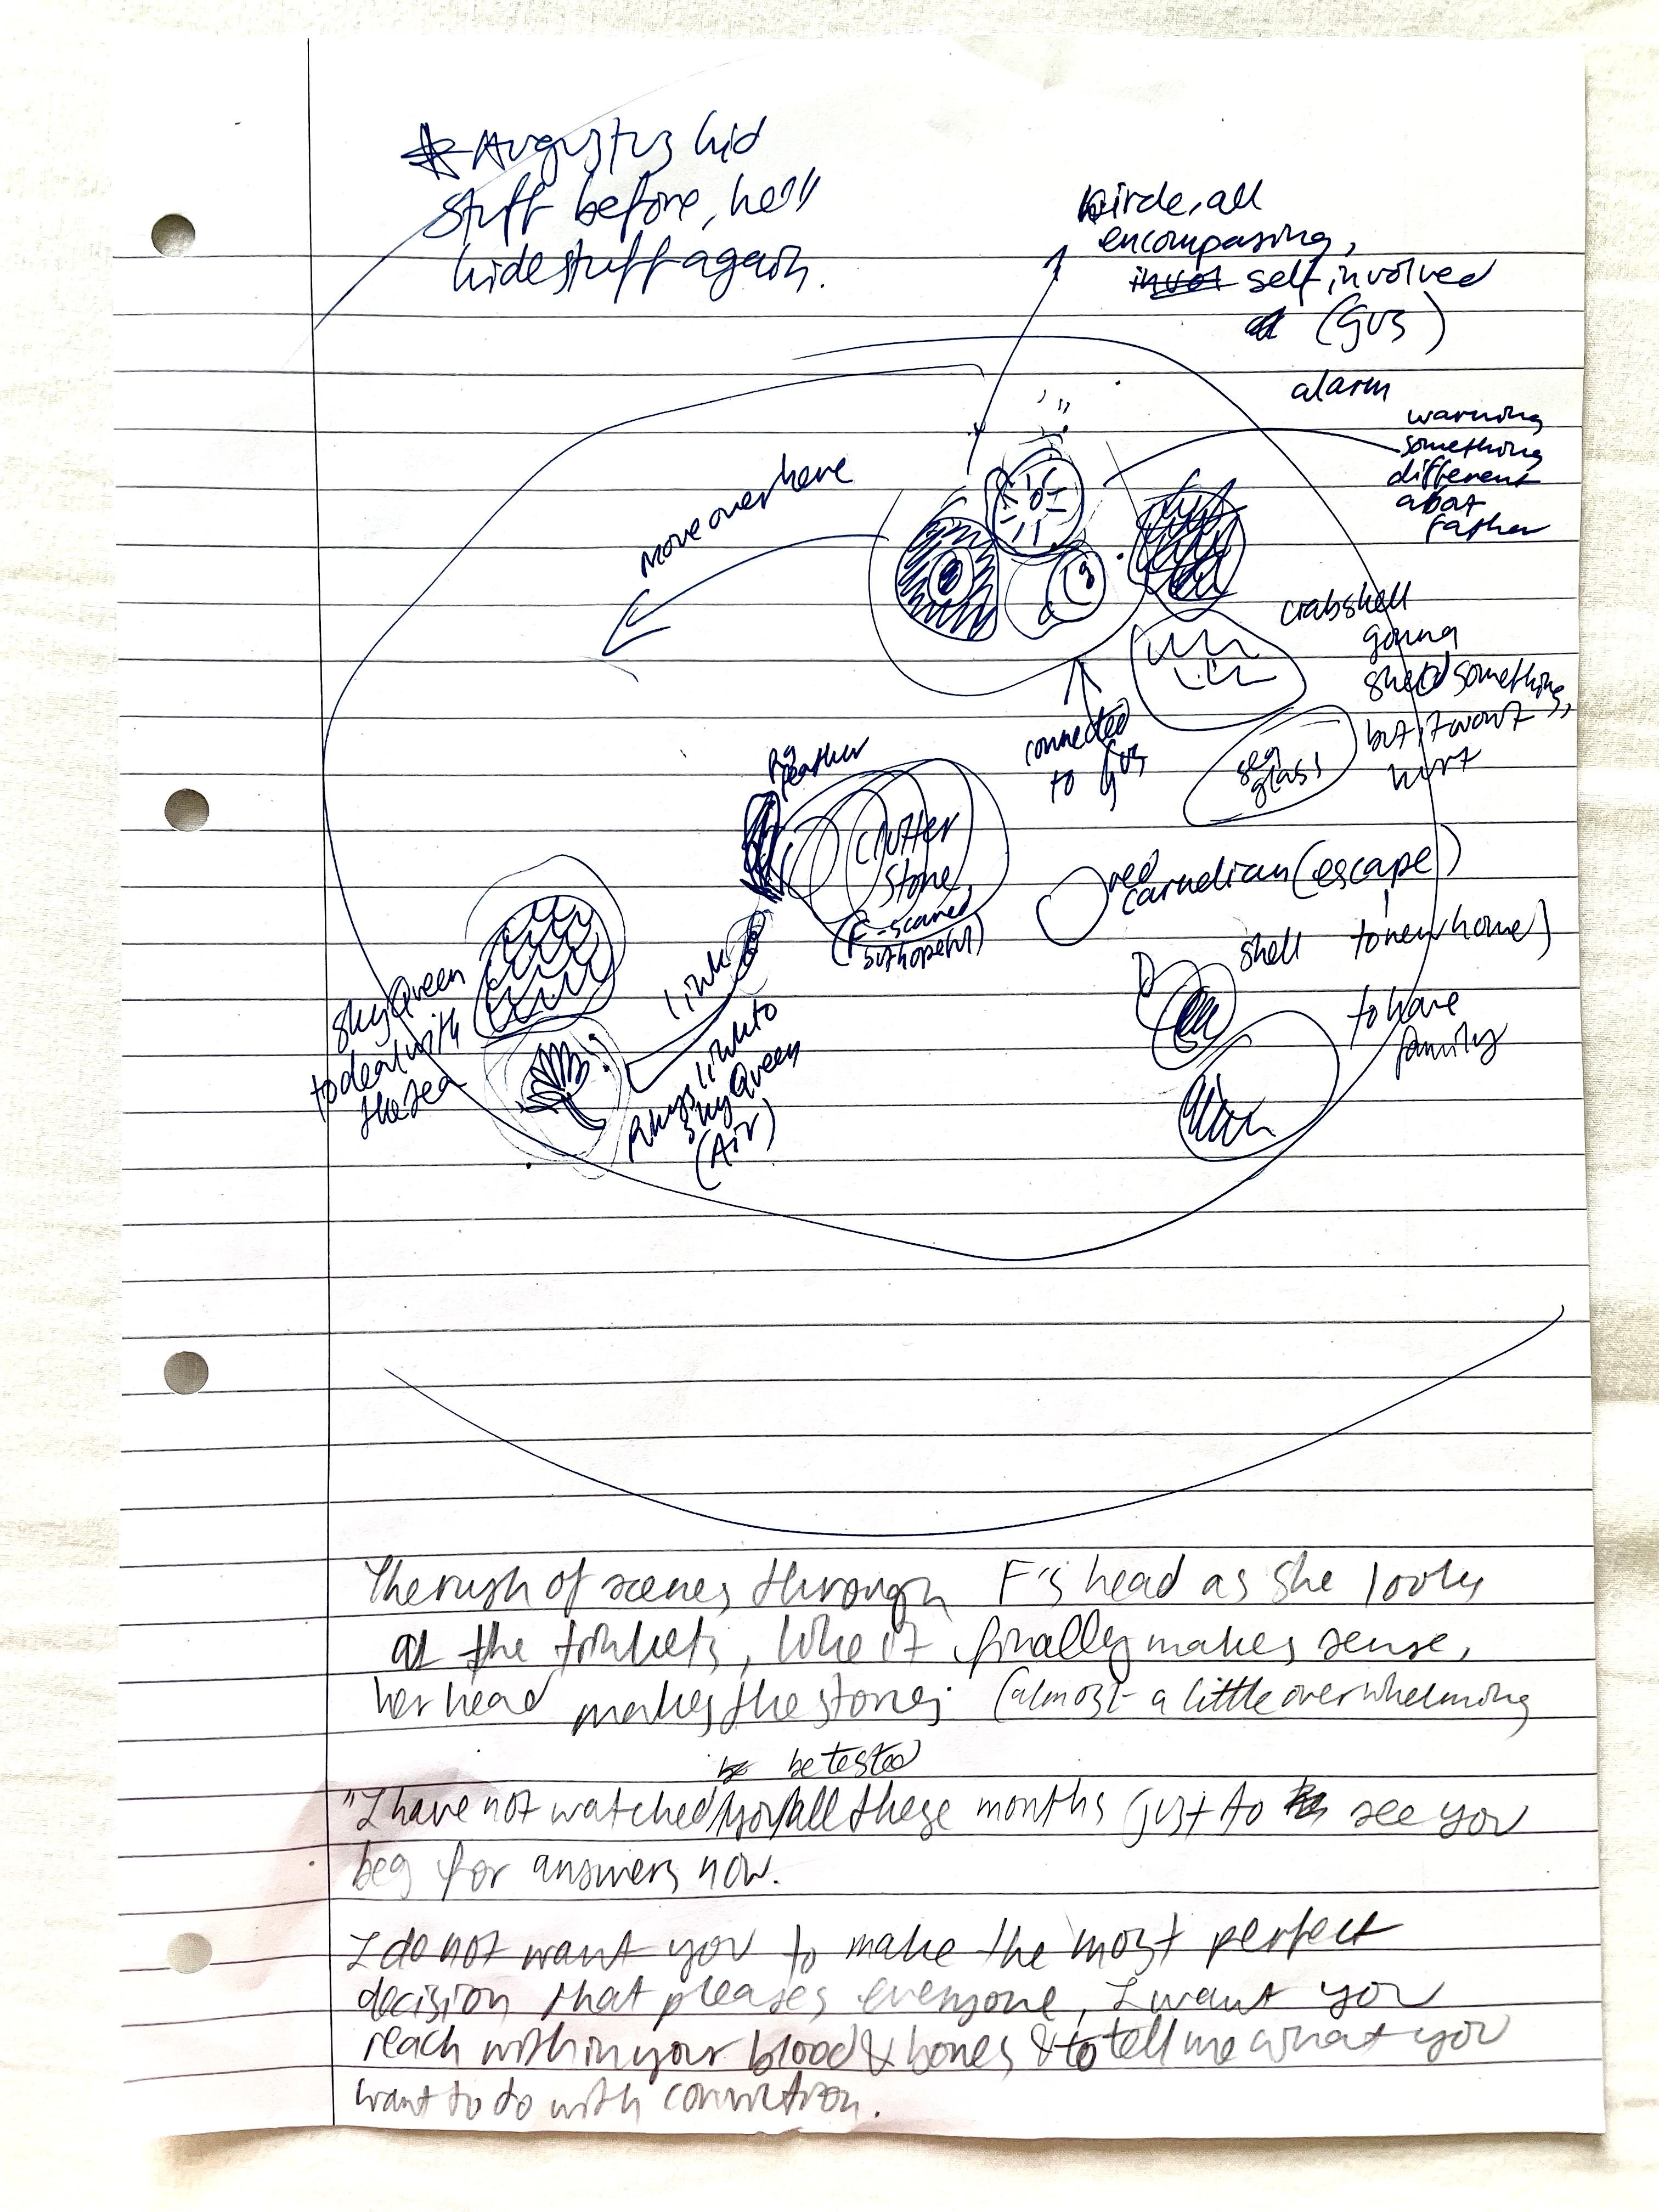 Augustus hid
stuff before, he'll
hide stuff again.
circle, all
encompasing,
self, involved
(Gus)
alarm
warning
something
different
about
father
move over here
crabshell
gonna
shed something,
but it won't
hurt
connected
to Gus
sea
glass
feather
Clutter
Stone
(F - scared
but hopeful)
red
carnelian (escape)
to new home)
shell
to have
family
Sky Queen
to deal with
the sea
link
Rhys link to
Sky Queen
(Air)
The rush of scenes through F's head as she looks
at the trinkets, like it finally makes sense,
her head makes the stories. (almost a little overwhelming
be tested
"I have not watched you all these months just to see you
beg for answers now.
I do not want you to make the most perfect
decision that pleases everyone, I want you
reach within your blood & bones & to tell me what you
want to do with conviction.